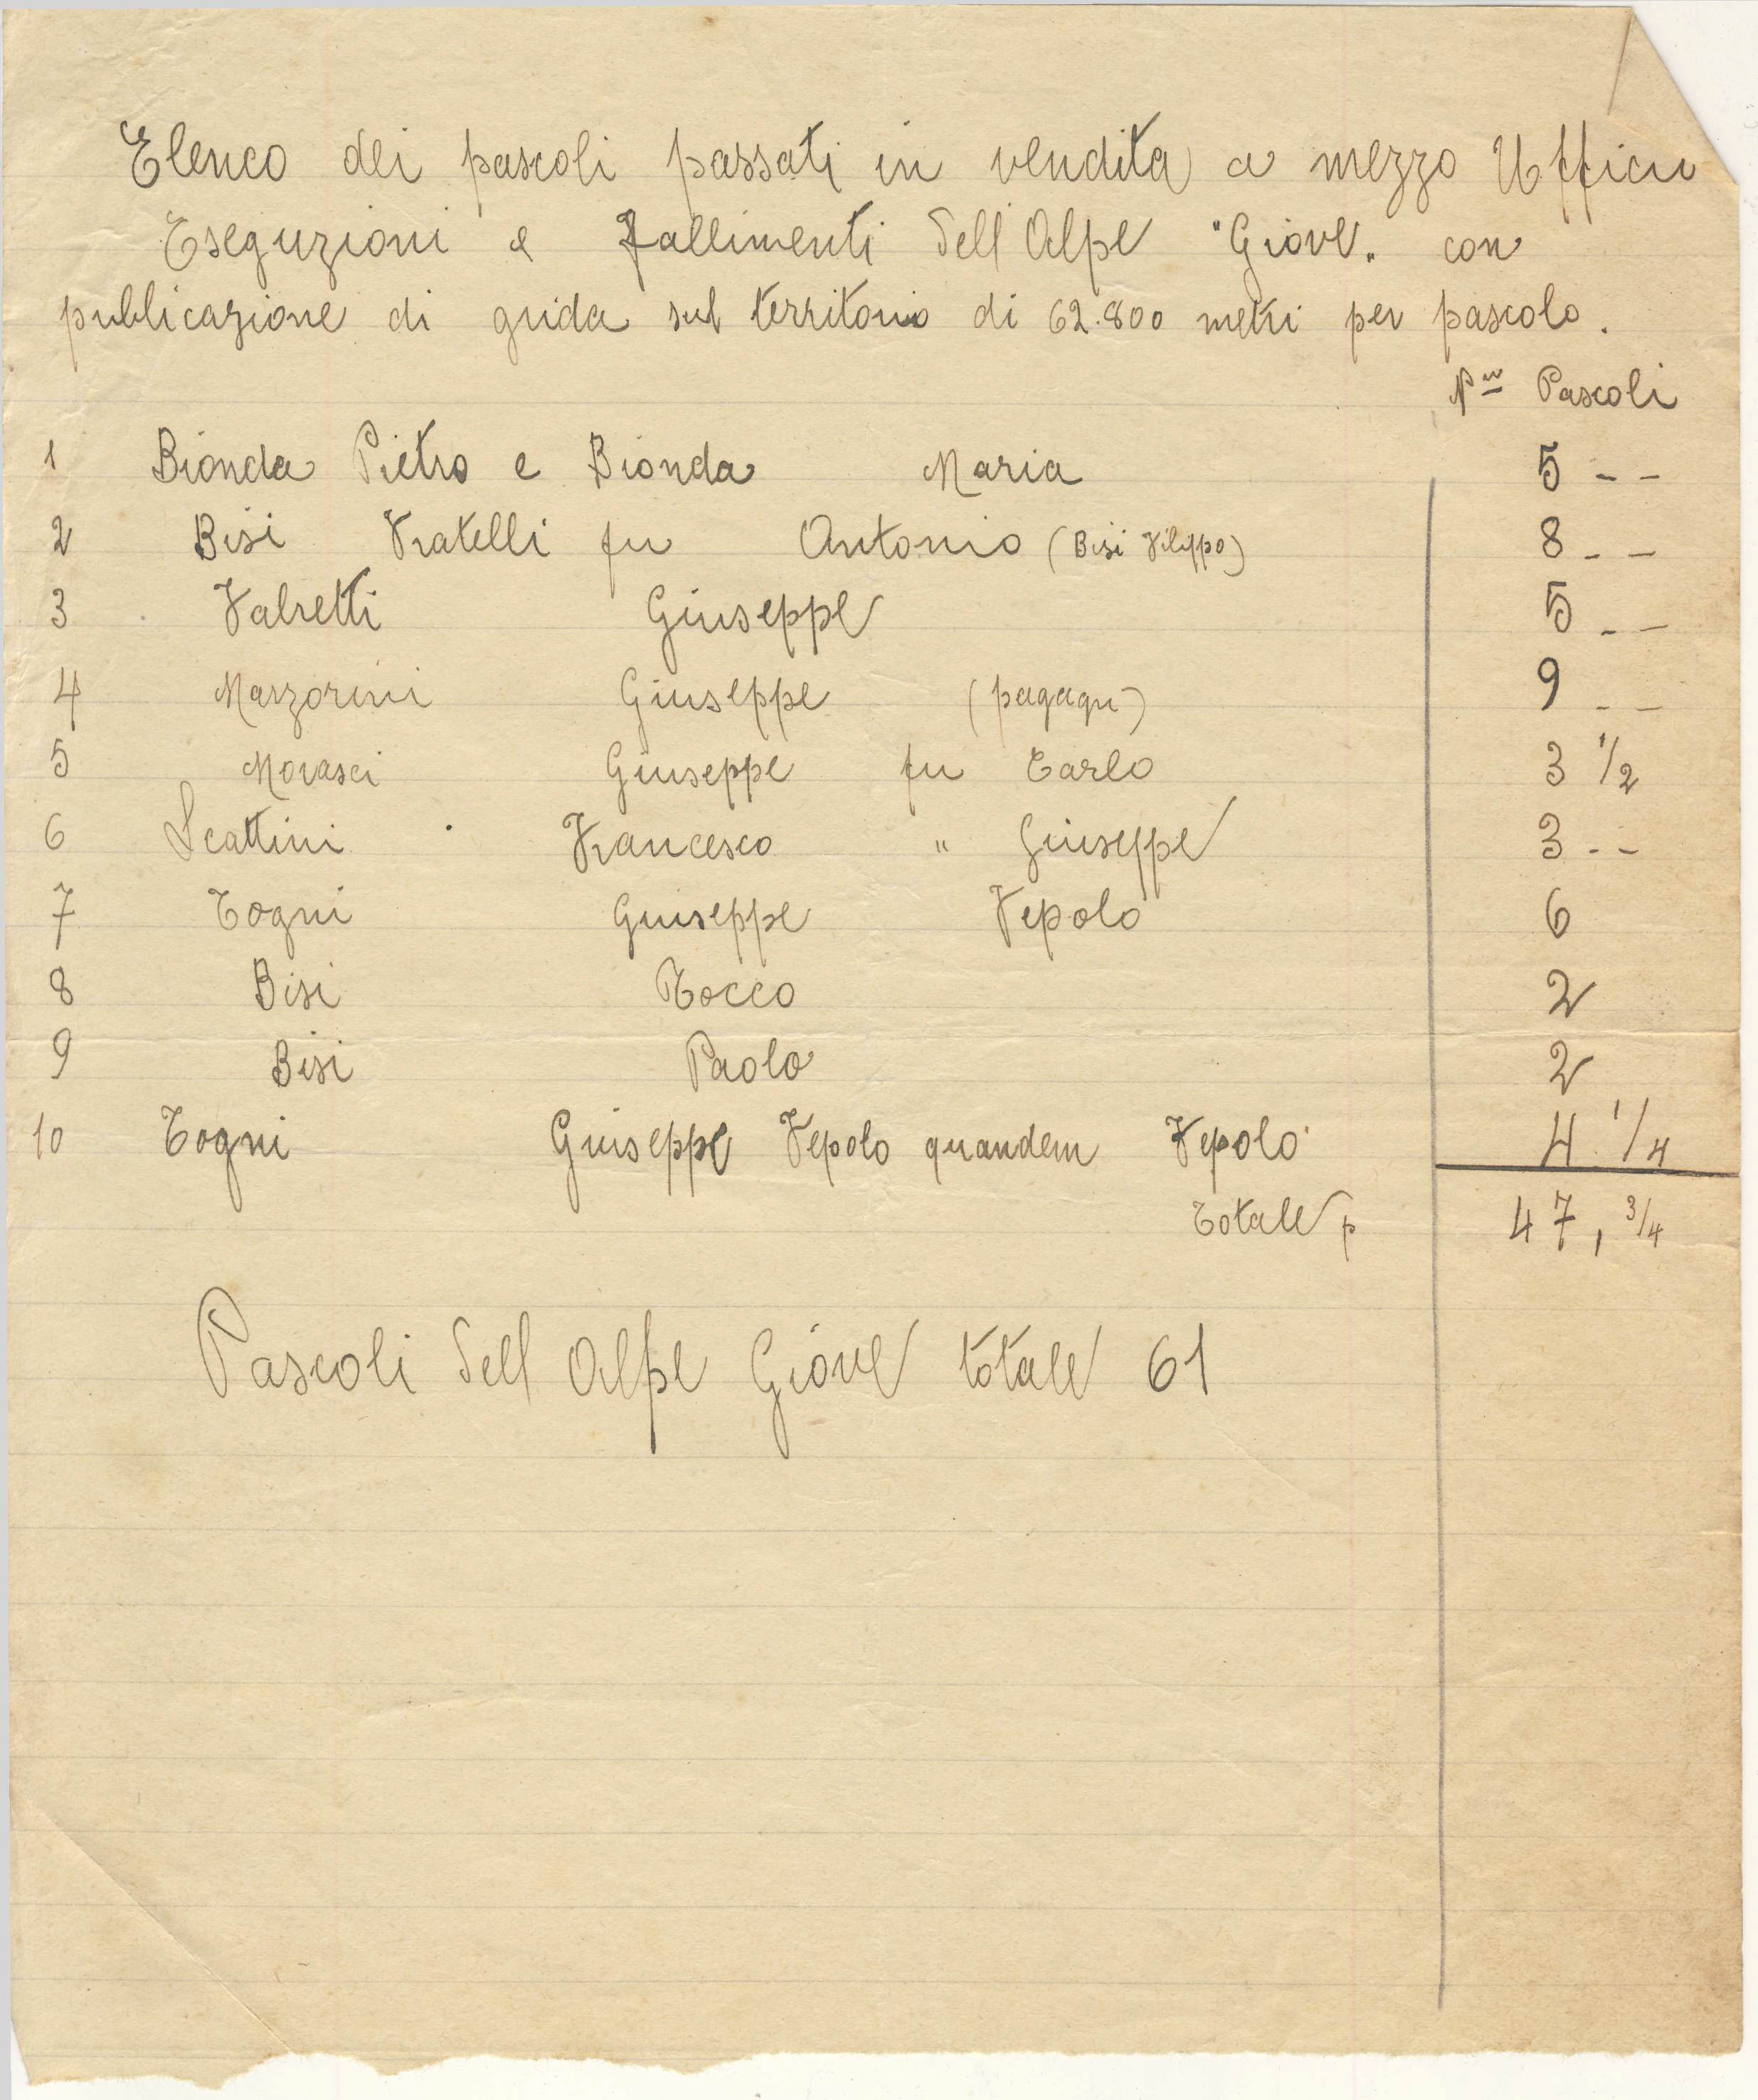 Elenco dei pascoli passati in vendita a mezzo Ufficio
Eseguzioni e Fallimenti dell'Alpe "Giove" con
publicazione di grida sul territorio di 62.800 metri per pascolo.
Nro Pascoli
1 Bionda Pietro e Bionda Maria 5 - -
2 Bisi Fratelli fu Antonio (Bisi Filippo) 8 - -
3 Falretti Giuseppe 5 - -
4 Marzorini Giuseppe (pagagn) 9 - -
5 Morasci Giuseppe fu Carlo 3 1/2
6 Scattini Francesco " Giuseppe 3 - -
7 Togni Giuseppe Fepolo 6
8 Bisi Rocco 2
9 Bisi Paolo 2
10 Togni Giuseppe Fepolo quandem Fepolo 4 1/4
Totale p 47, 3/4
Pascoli dell Alpe Giove totale 61